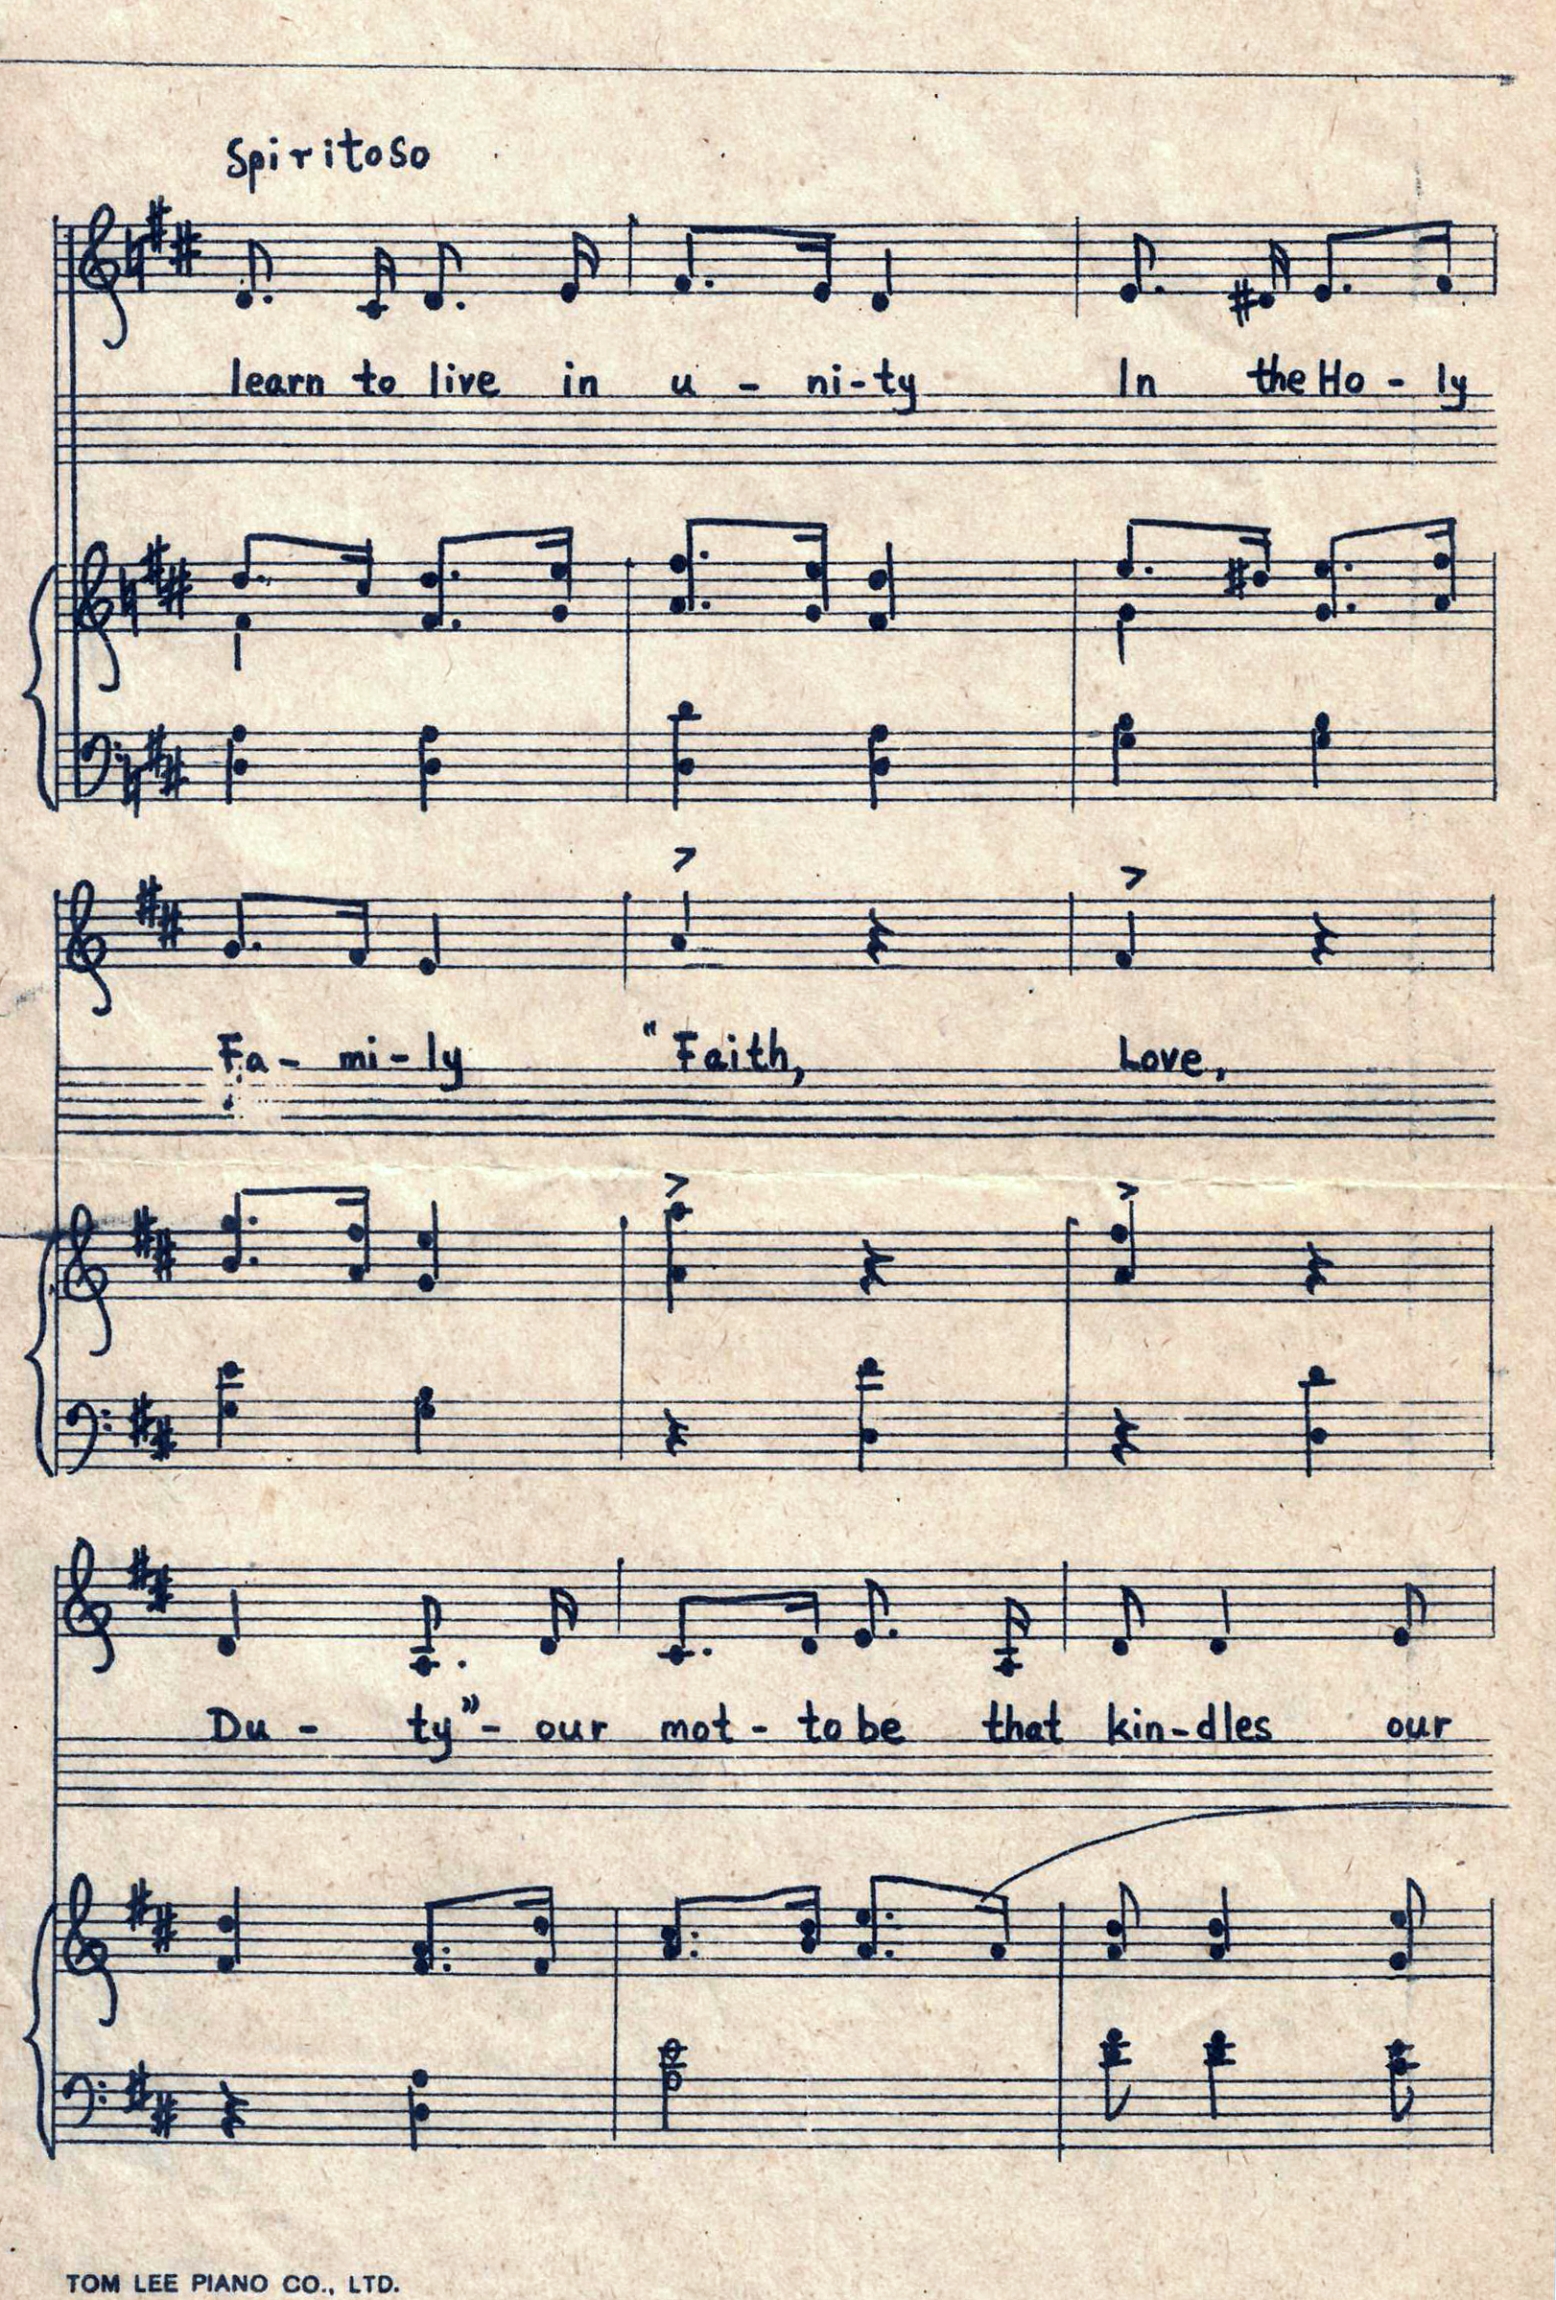 Spiritoso
learn to live in u - ni - ty In the Ho - ly
Fa - mi - ly "Faith, Love,
Du - ty" - our mot - to be that kin - dles our
TOM LEE PIANO CO., LTD.